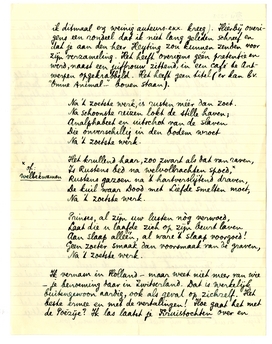 ik dismaal op weinig auteurs-exx. kreeg). Hierbij overi-
gens een rondeel dat ik niet lang geleden schreef en
dat je aan den heer Heyting zou kunnen zenden voor
zijn verzameling. Het heeft overigens geen pretentie –
werd, naast een juffrouw zittend, in een café te Ant-
werpen opgekrabbeld. Het heeft geen titel, er kan bv.
"Omne Animal" boven staan).
Na 't zoetste werk, is rusten méér dan zoet.
Na schoonste reizen lokt de stille haven
Analphabeet en uitschot van de slaven
Die onverschillig in den bodem wroet
Na 't zoetste werk.
Het krullend haar, zoo zwart als dat van raven,
'Is Rustens bed na welvolbrachten spoed,
Rustens gazoen na 't hartverslijtend draven,
De kuil waar Dood met Liefde smelten moet,
Na 't zoetste werk.
* of:
wellustwonen
Prinses, al zijn uw lusten nòg verwoed,
Laat die u laafde zich op zijn beurt laven
Aan slaap alleen, al ware 't slaap voorgoed!
Geen zoeter smaak dan voorsmaak van de graven,
Na 't zoetste werk.
Ik vernam in Holland – maar weet niet meer van wie
– je benoeming daar in Zwitserland. Dat is werkelijk
buitengewoon aardig, ook als geval op zichzelf. Het
beste ermee en met de vertalingen! Hoe gaat het met
de Poëzie? Ik las laatst je Kruistochten over en